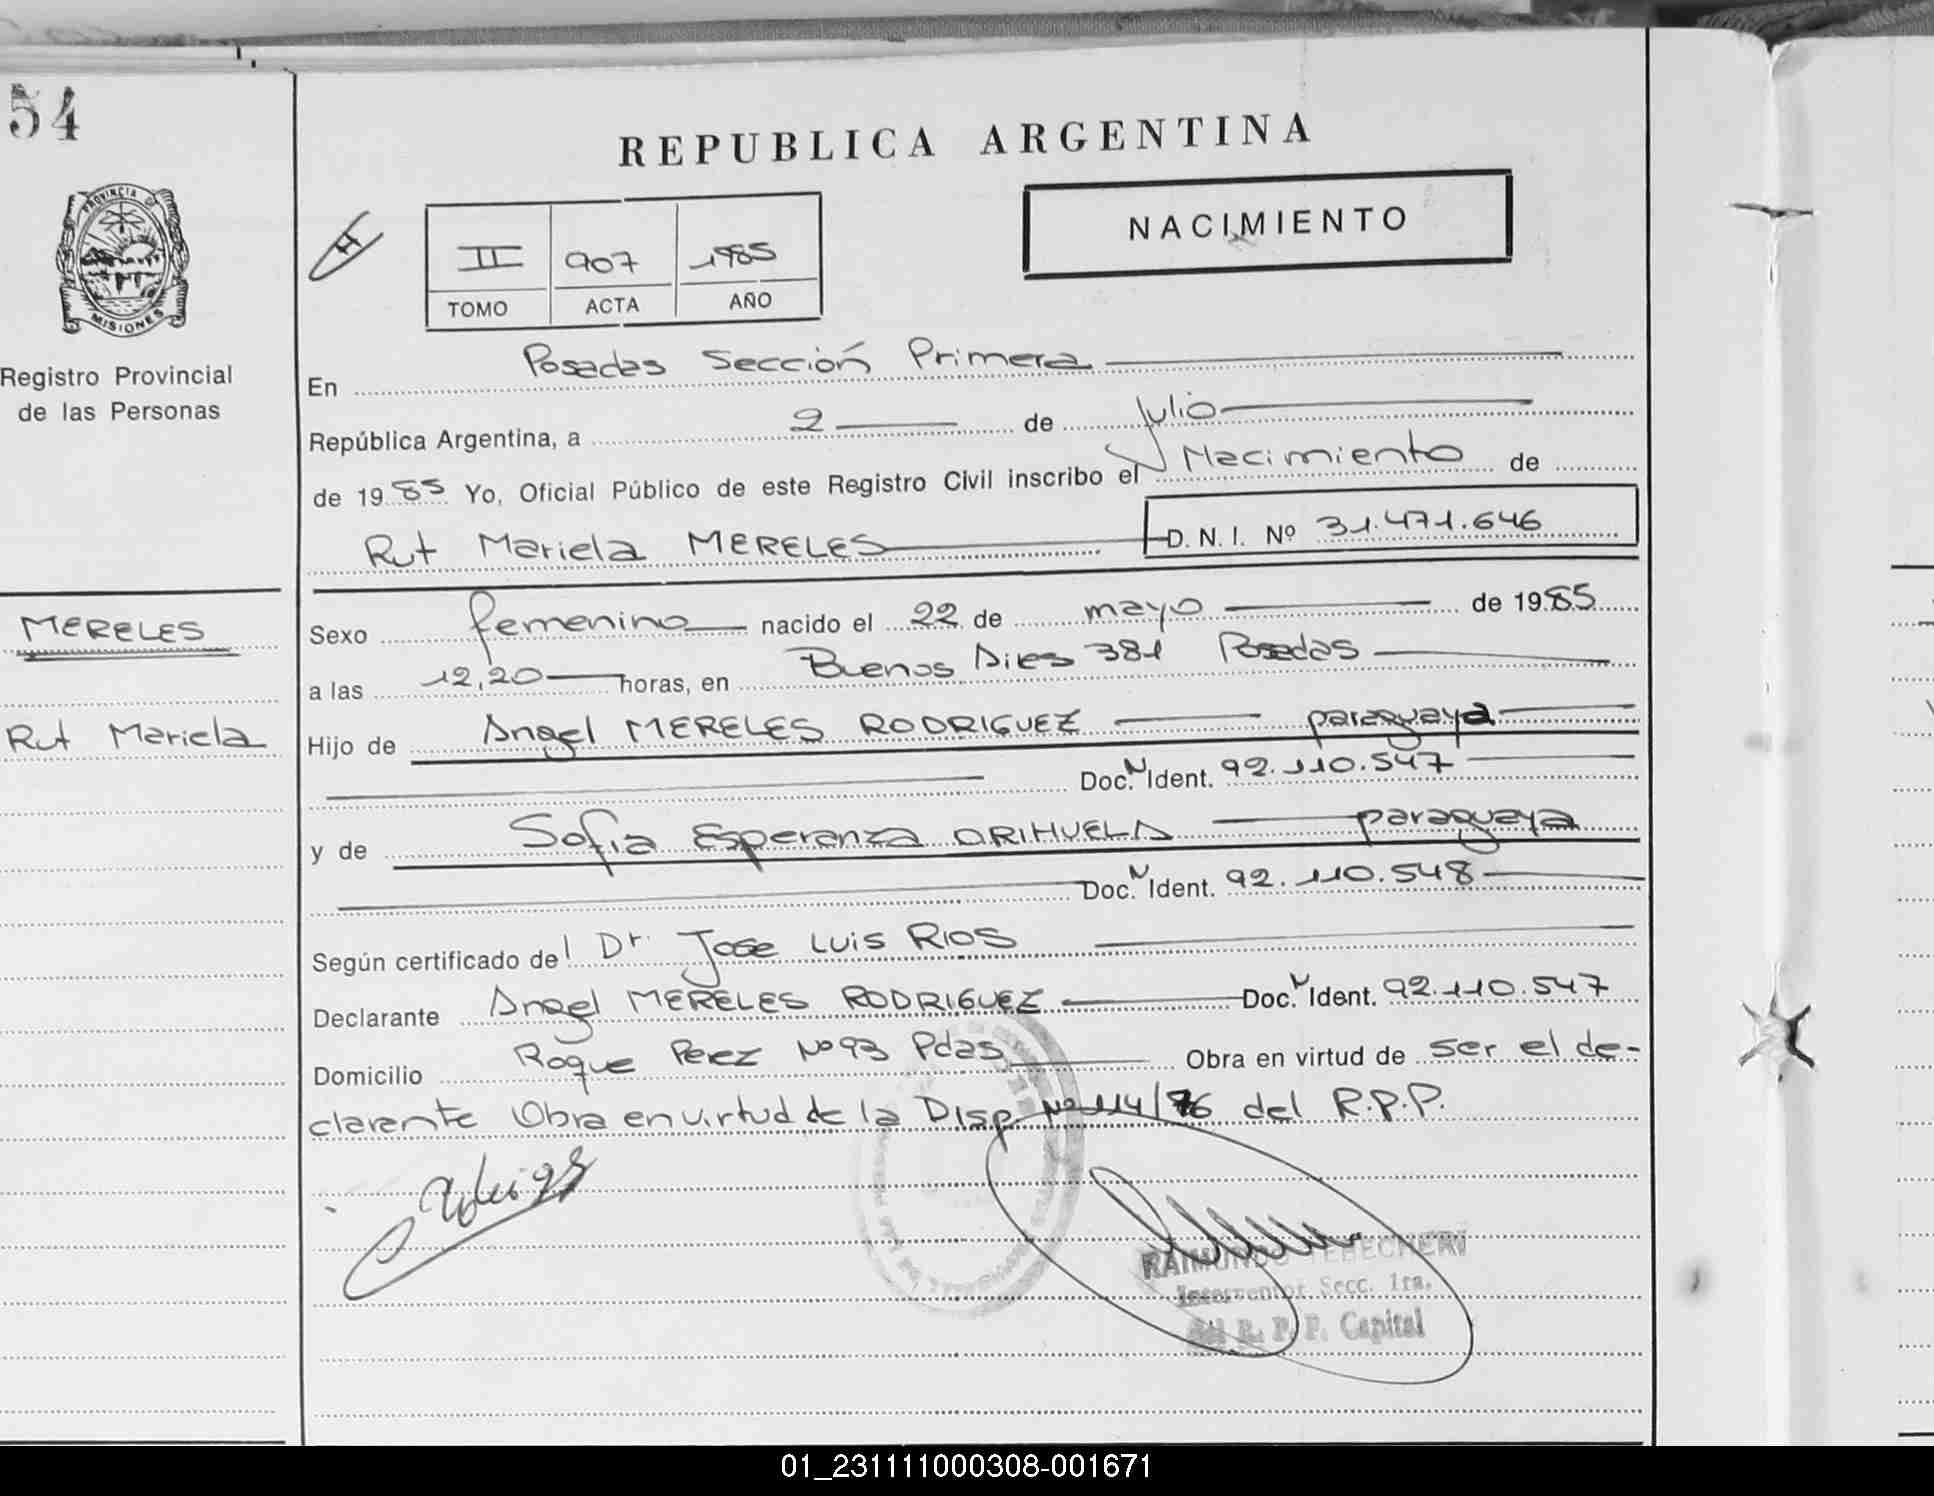 54
REPUBLICA ARGENTINA
PROVINCIA DE
MISIONES
Registro Provincial
de las Personas
MERELES
Rut Mariela
H
II 907 1985
TOMO ACTA AÑO
NACIMIENTO
En Posadas Sección Primera
República Argentina, a 2 de Julio
de 1985 Yo, Oficial Público de este Registro Civil inscribo el Nacimiento de
Rut Mariela MERELES D. N. I. Nº 31.471.646
Sexo femenino nacido el 22 de mayo de 1985
a las 12,20 horas, en Buenos Aires 381 Posadas
Hijo de Angel MERELES RODRIGUEZ paraguaya
Doc. N Ident. 92.110.547
y de Sofia Esperanza ORIHUELA paraguaya
Doc. N Ident. 92.110.548
Según certificado del Dr. Jose Luis RIOS
Declarante Angel MERELES RODRIGUEZ Doc. N Ident. 92.110.547
Domicilio Roque Perez Nº 93 Pdas Obra en virtud de ser el de-
clarante Obra en virtud de la Disp Nº 114/76 del R.P.P.
RAIMUNDO TEBECHERI
Interventor Secc. 1ra.
del R. P. P. Capital
01_231111000308-001671